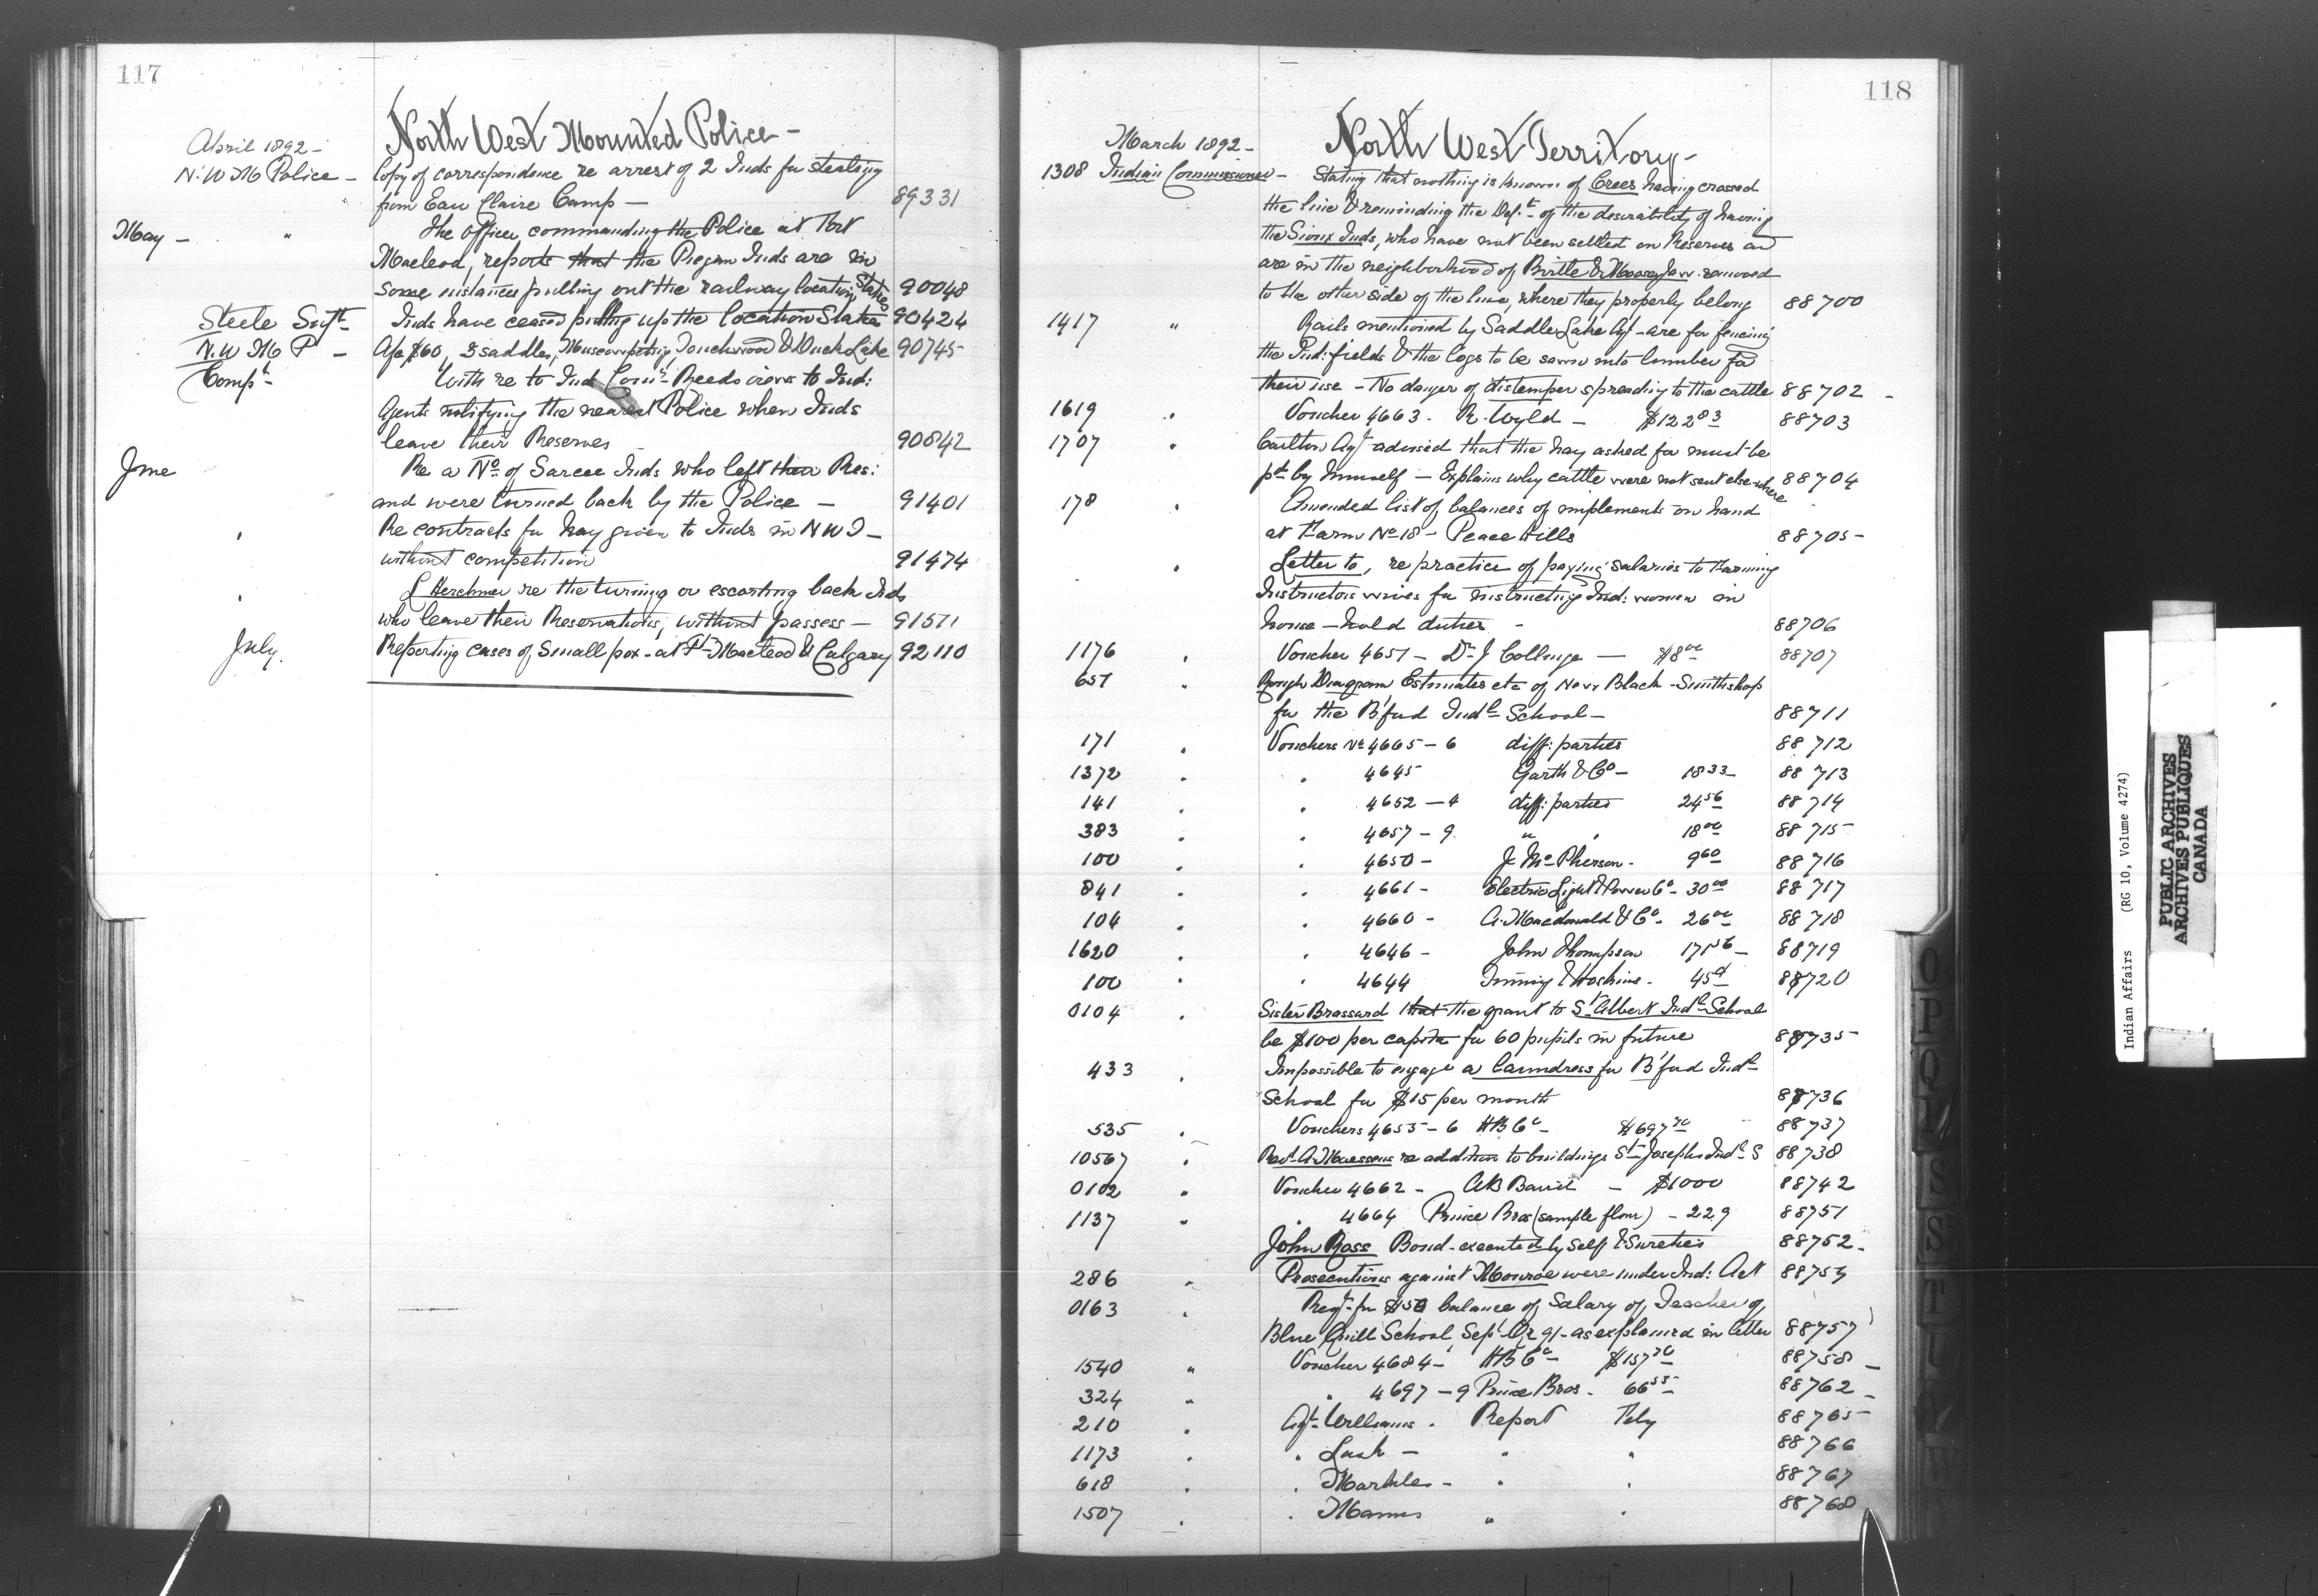 117
North West Mounted Police -
April 1892 -
N.W M Police - Copy of correspondence re arrest of 2 Inds for stealing
from Eau Claire Camp - 89331
May - " The Officer commanding the Police at Fort
Macleod, reports that the Piegan Inds are in
some instances pulling out the railway location Stakes 90048
Steele Supt Inds have ceased pulling up the location Stakes 90424
N.W M P - $60, 3 saddles, Muscowpetung Touchwood & Duck Lake 90745
Compt - With re to Ind Comr Reeds views to Ind:
Agents notifying the nearest Police when Inds
leave their Reserves 90842
June Re a No of Sarcee Inds who left their Res:
and were turned back by the Police - 91401
" Re contracts for hay given to Inds in N W T -
without competition 91474
" L Herchmer re the turning or escorting back Inds
who leave their Reservations, without passess - 91571
July. Reporting cases of Small pox - at Ft Macleod & Calgary 92110
118
North West Territory -
March 1892 -
1308 Indian Commissioner - Stating that nothing is known of Crees having crossed
the line & reminding the Dept of the desirability of having
the Sioux Inds, who have not been settled on Reserves and
are in the neighborhood of Birtle & Moosejaw removed
to the other side of the line, where they properly belong 88700
1417 " Rails mentioned by Saddle Lake Agt - are for fencing
the Ind: fields & the logs to be sawn into lumber for
their use - No danger of distemper spreading to the cattle 88702 -
1619 " Voucher 4663 - R. Wyld - $122 83 88703
1707 " Carlton Agt advised that the hay asked for must be
pd by himself - Explains why cattle were not sent else-where 88704
178 " Amended list of balances of implements on hand
at Farm No 18 - Peace Hills 88705 -
" Letter to, re practice of paying salaries to Farming
Instructors wives for instructing Ind: women in
house-hold duties - 88706
1176 " Voucher 4651 - Dr J Collinge - $8 00 88707
651 " Rough Diagram Estimates etc of New Black-Smithshop
for the B'ford Indl School - 88711
171 " Vouchers No 4665 - 6 diff: parties 88712
1372 " " 4645 Garth & Co - 18 33 88713
141 " " 4652 - 4 diff: parties 24 56 88714
383 " " 4657 - 9 " " 18 00 88715
100 " " 4650 - J. McPherson - 9 60 88716
841 " " 4661 - Electric Light & Power Co - 30 00 88717
104 " " 4660 - A. Macdonald & Co - 26 00 88718
1620 " " 4646 - John Thompson 171 56 - 88719
100 " " 4644 & Hoskins - 88720
0104 " Sister Brassard that the grant to St Albert Indl School
be $100 per capita for 60 pupils in future 88735
433 " Impossible to engage a laundress for B'ford Indl
School for $15 per month 88736
535 " Vouchers 4655 - 6 HB Co - $697 88737
10567 " Revd A. Naessens re addition to buildings St Josephs Indl S 88738
0102 " Voucher 4662 - - $1000 88742
1137 " " 4664 Prince Bros (sample flour) - 2 29 88751
John Ross Bond - executed by self & Sureties 88752 -
286 " Prosecutions against Monroe were under Ind: Act 88754
0163 " Reqt for $50 balance of Salary of, Teacher of,
Blue Quill School, Sept Qr 91 - as explained in letter 88757
1540 " Voucher 4684 - HB Co - $157 88758 -
324 " " 4697 - 9 Prince Bros. - 66 55 88762 -
210 " Agt Williams. Report Feby 88765
1173 " " Lash - " " 88766
618 " " Markle - " " 88767
1507 " " Mann " " 88768
O
P
Q
R
S
S
T
U
Indian Affairs (RG 10, Volume 4274)
PUBLIC ARCHIVES
ARCHIVES PUBLIQUES
CANADA